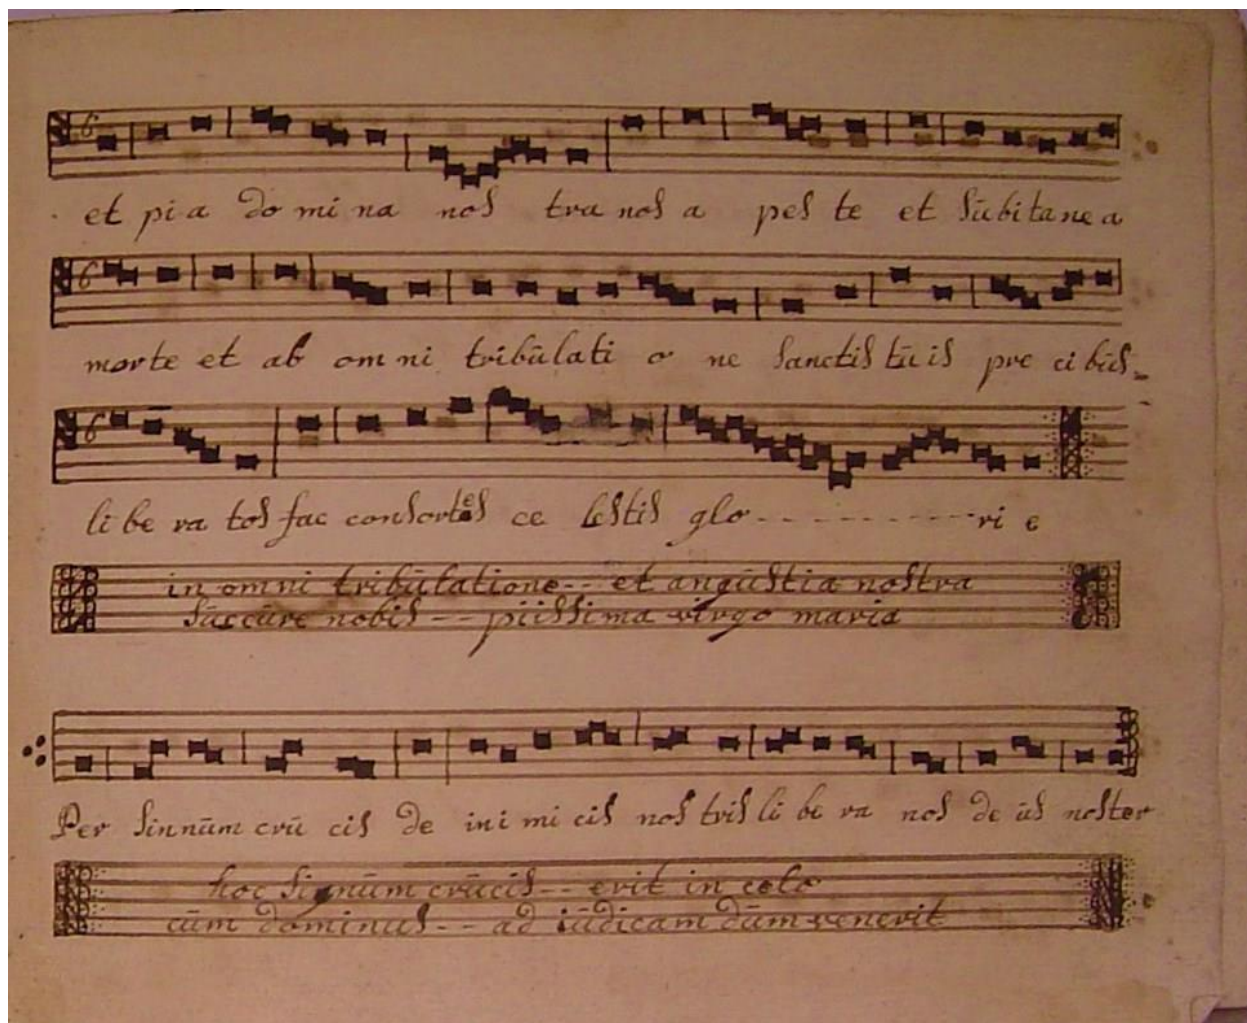 et pi a do mi na nos tra nos a pes te et sūbi ta ne a
morte et ab om ni tribūlati o ne sanctis tū is pre ci būs
li be ra tos fac consortes ce lestis glo - - - - - - - - - - ri e
in omni tribūlatione -- et angūstia nostra
sūccūre nobis -- piissima virgo maria
Per sinnūm crū cis de ini mi cis nos tris li be ra nos de ūs noster
hoc signūm crūcis -- erit in celo
cūm dominus -- ad iūdicam dūm venerit